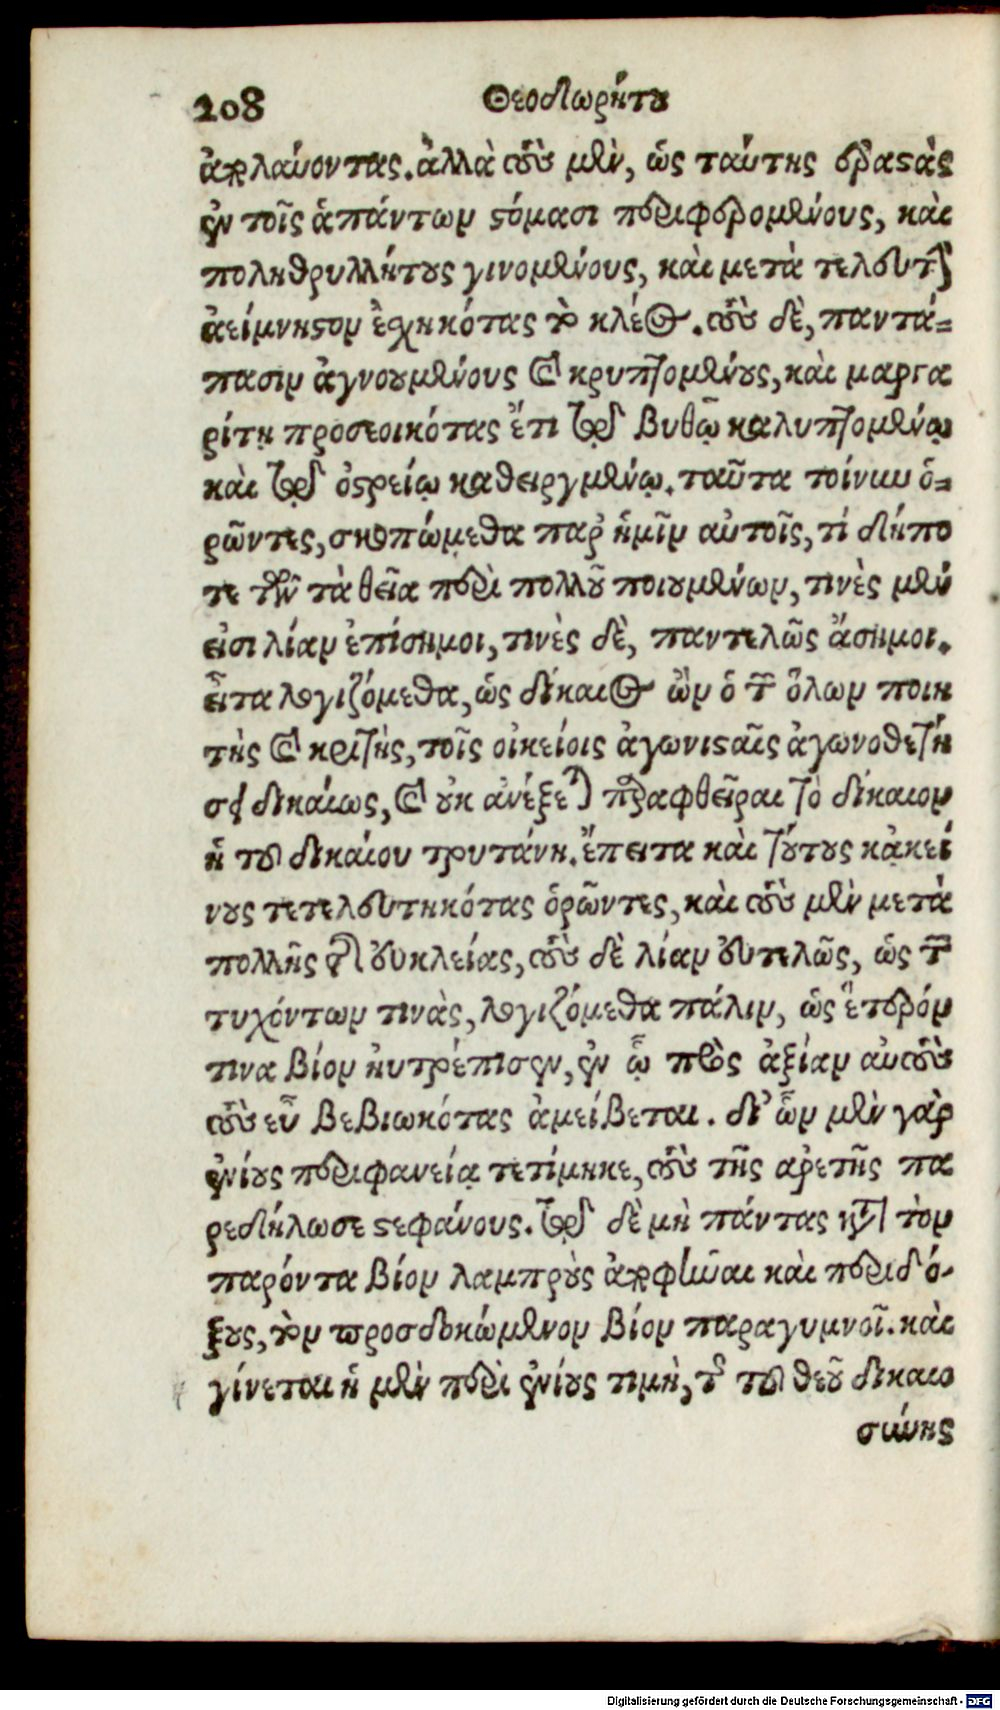 208 Θεοδωρήτου
ἀπολαύοντας. ἀλλὰ τοὺς μὲν, ὡς ταύτης ἐραστὰς
ἐν τοῖς ἁπάντων στόμασι περιφερομένους, καὶ
πολυθρυλλήτους γινομένους, καὶ μετὰ τελευτὴν
ἀείμνηστον ἐσχηκότας τὸ κλέος. τοὺς δὲ, παντά-
πασιν ἀγνουμένους καὶ κρυπτομένους, καὶ μαργα
ρίτῃ προσεοικότας ἔτι τῷ βυθῷ καλυπτομένῳ
καὶ τῷ ὀστρείῳ καθειργμένῳ. ταῦτα τοίνυν ὁ-
ρῶντες, σκοπώμεθα παρ' ἡμῖν αὐτοῖς, τί δήπο
τε τῶν τὰ θεῖα περὶ πολλοῦ ποιουμένων, τινὲς μὲν
εἰσι λίαν ἐπίσημοι, τινὲς δὲ, παντελῶς ἄσημοι.
εἶτα λογιζόμεθα, ὡς δίκαιος ὢν ὁ τῶν ὅλων ποιη
τὴς καὶ κριτὴς, τοῖς οἰκείοις ἀγωνισταῖς ἀγωνοθετή
σει δικαίως, καὶ οὐκ ἀνέξεται παραφθεῖραι τὸ δίκαιον
ἡ τοῦ δικαίου τρυτάνη. ἔπειτα καὶ τούτους κἀκεί
νους τετελευτηκότας ὁρῶντες, καὶ τοὺς μὲν μετὰ
πολλῆς τῆς εὐκλείας, τοὺς δὲ λίαν εὐτελῶς, ὡς τῶν
τυχόντων τινὰς, λογιζόμεθα πάλιν, ὡς ἕτερόν
τινα βίον ηὐτρέπισεν, ἐν ᾧ πρὸς ἀξίαν αὐτοὺς
τοὺς εὖ βεβιωκότας ἀμείβεται. δι' ὧν μὲν γὰρ
ἐνίους περιφανείᾳ τετίμηκε, τοὺς τῆς ἀρετῆς πα
ρεδήλωσε στεφάνους. τῷ δὲ μὴ πάντας κατὰ τὸν
παρόντα βίον λαμπροὺς ἀποφῆναι καὶ περιδό-
ξους, τὸν προσδοκώμενον βίον παραγυμνοῖ. καὶ
γίνεται ἡ μὲν περὶ ἐνίους τιμὴ, τῆς τοῦ θεοῦ δικαιο
σύνης
Digitalisierung gefördert durch die Deutsche Forschungsgemeinschaft - DFG